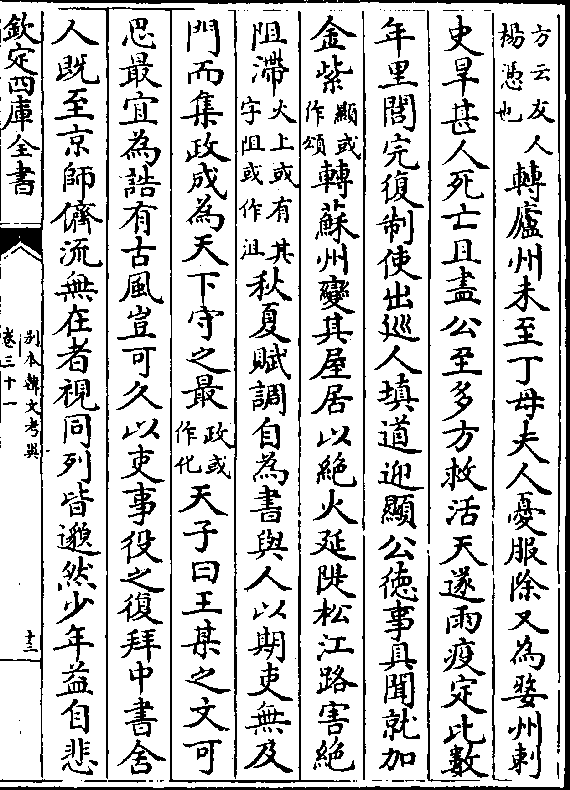 方云友人楊憑也轉廬州未至丁母夫人憂服除又為婺州刺
史旱甚人死亡且盡公至多方救活天遂雨疫定比數
年里閭完復制使出巡人填道迎顯公徳事具聞就加
金紫顯或作頌轉蘇州變其屋居以絶火延隄松江路害絶
阻滯火上或有其字阻或作沮秋夏賦調自為書與人以期吏無及
門而集政成為天下守之最政或作化天子曰王某之文可
思最宜為誥有古風豈可久以吏事役之復拜中書舍
人既至京師儕流無在者視同列皆邈然少年益自悲
欽定四庫全書
别本韓文考異
卷三十一
十三